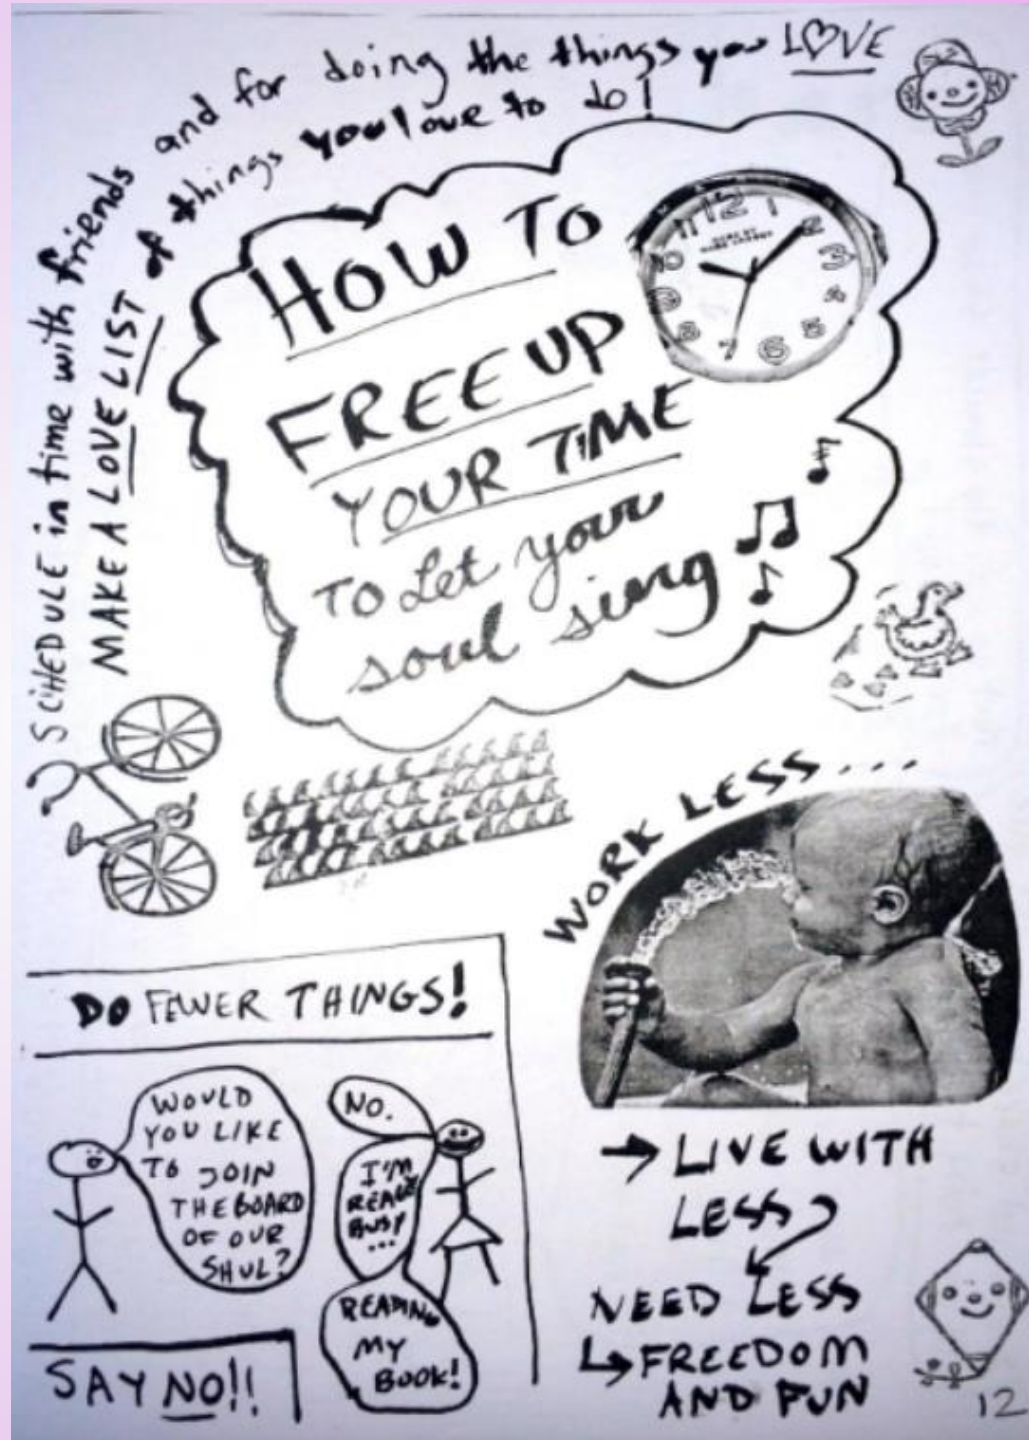 SCHEDULE in time with friends and for doing the things you LOVE
MAKE A LOVE LIST of things you love to do!
HOW TO
FREE UP
YOUR TIME
TO Let your
soul sing
12 1 2 3 5 6 7 8 10 11
WORK LESS...
DO FEWER THINGS!
WOULD
YOU LIKE
TO JOIN
THE BOARD
OF OUR
SHUL?
NO.
I'M
REALLY
BUSY
...
READING
MY
BOOK!
SAY NO!!
→ LIVE WITH
LESS
NEED LESS
↳ FREEDOM
AND FUN
12